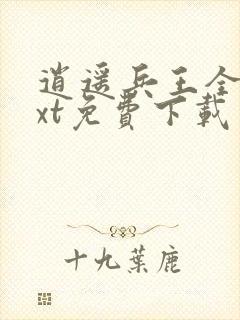 逍遥兵王全
xt免費下載
十九葉鹿